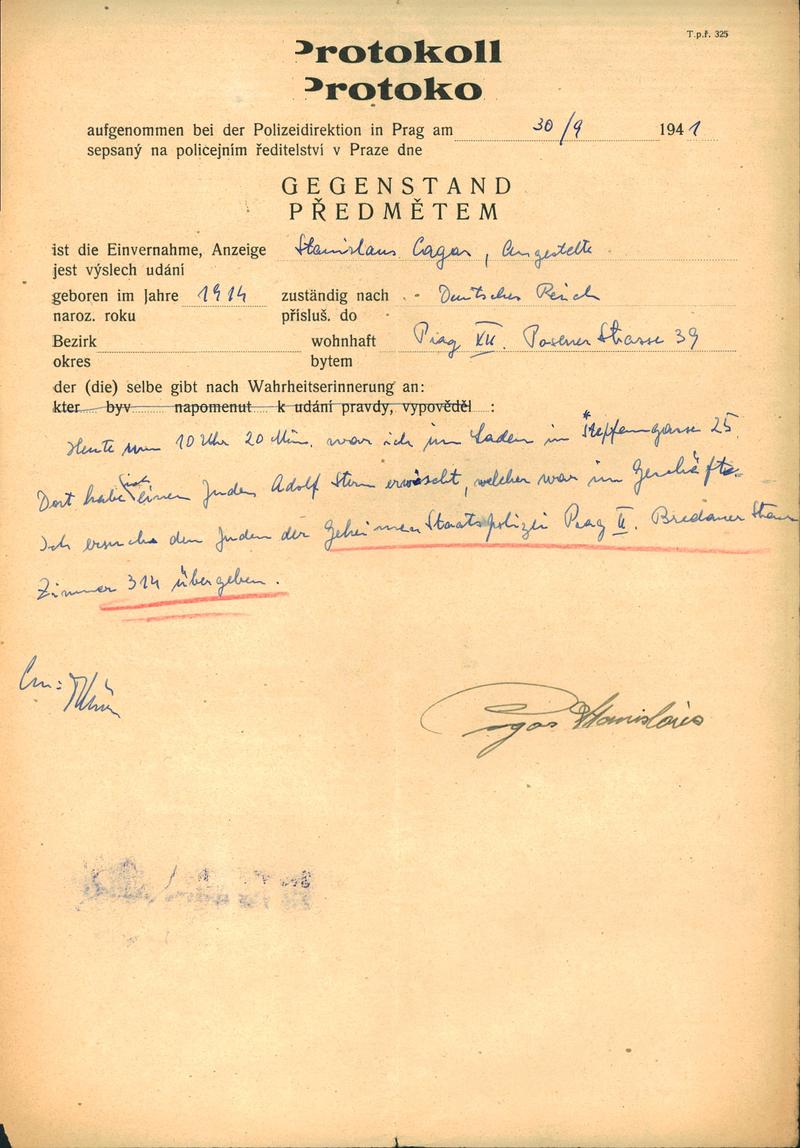 T.p.ř. 325
Protokoll
Protoko
aufgenommen bei der Polizeidirektion in Prag am 30/9 1941
sepsaný na policejním ředitelství v Praze dne
GEGENSTAND
PŘEDMĚTEM
ist die Einvernahme, Anzeige Stanislaus Cagas, Angestellte
jest výslech udání
geboren im Jahre 1914 zuständig nach Deutsches Reich
naroz. roku přísluš. do
Bezirk wohnhaft Prag XII. Posener Strasse 39
okres bytem
der (die) selbe gibt nach Wahrheitserinnerung an:
kter byv napomenut k udání pravdy, vypověděl :
Heute um 10 Uhr 20 Min. war ich im Laden in Stefansgasse 25.
Dort habe ich einen Juden Adolf Stern erwischt, welcher war im Geschäfte.
Ich ersuche den Juden der Geheimen Staatspolizei Prag II. Bredauer
Zimmer 314 übergeben.
Cagas Stanislaus